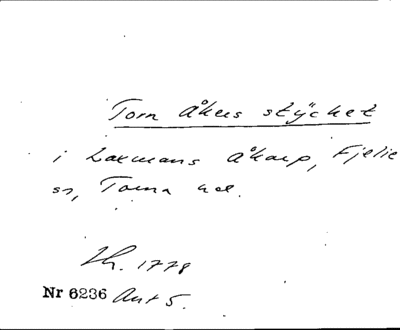 Torn Åkers stÿcket
i Laxmans Åkarp, Fjelie
sn, Torna hd.
Lh. 1778
Nr 6236 Ant 5.